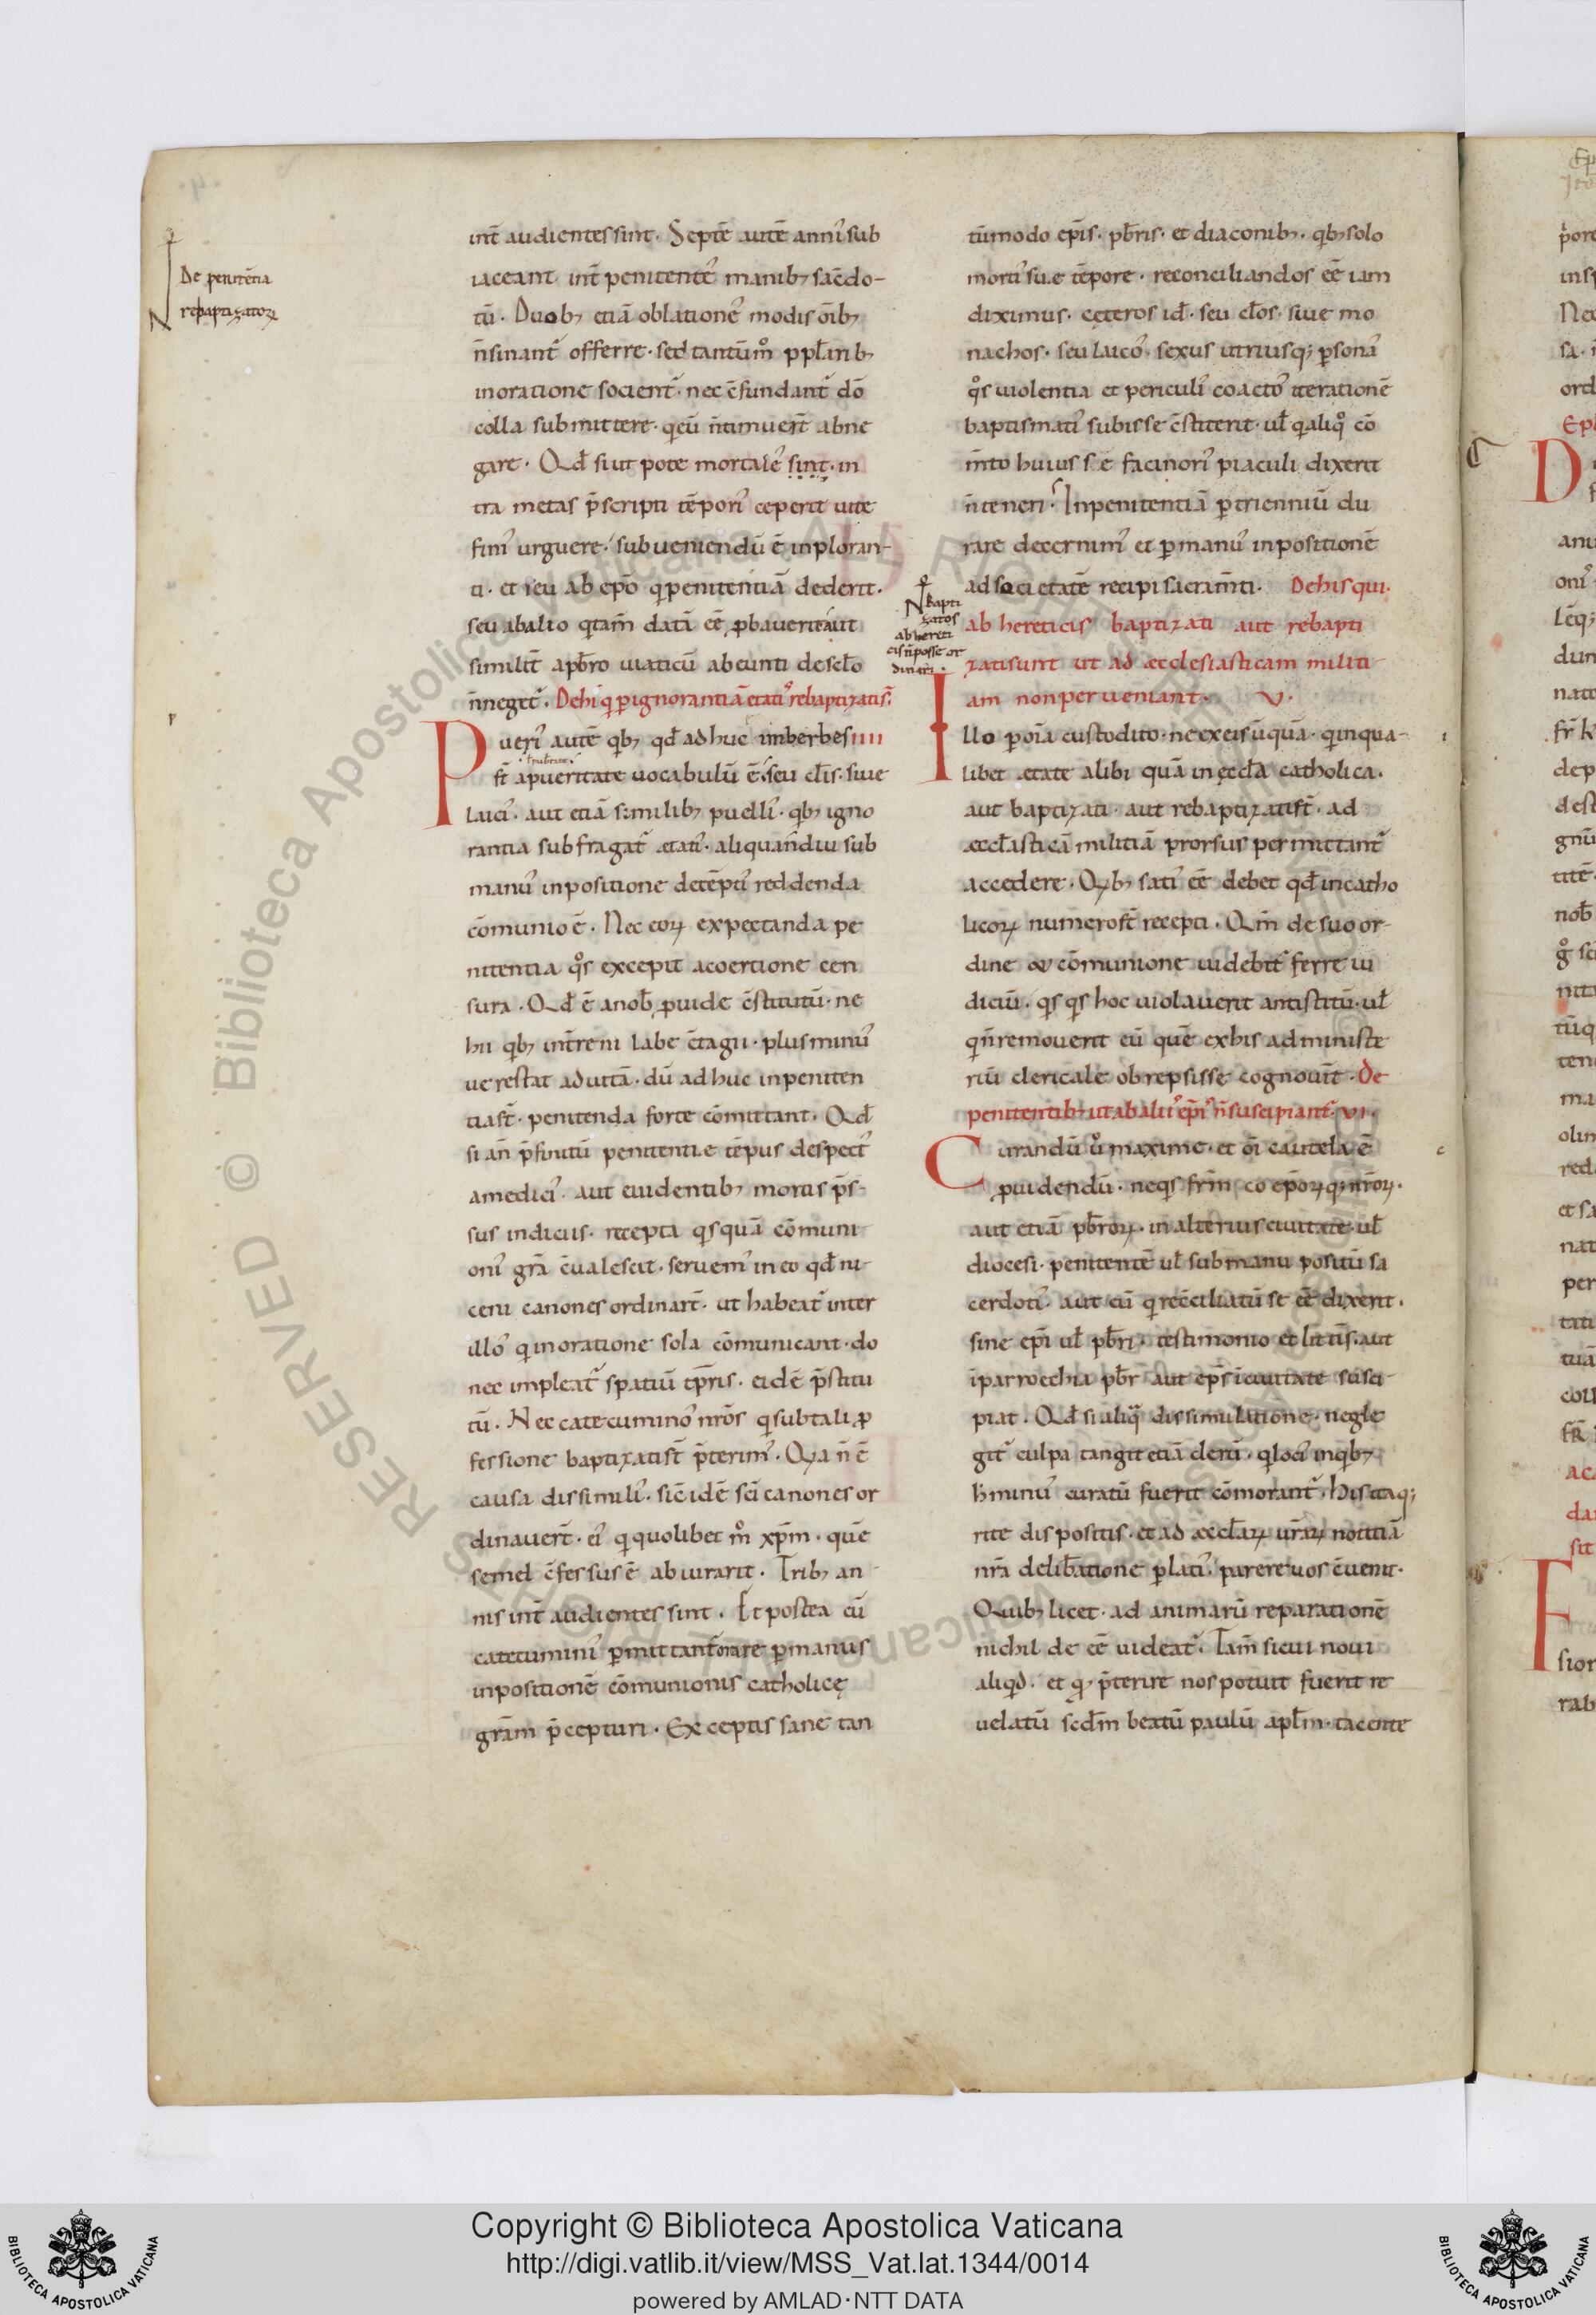 De penitẽtia
rebaptizatoꝝ
int̃ audientes sint. Septẽ autẽ anni sub
iaceant int̃ penitentes manibꝫ sac̃do-
tũ. Duobꝫ etiã oblationes modis õibꝫ
ñ sinant᷑ offerre. sed tantum̊
in oratione socient᷑. nec c̃fundant᷑ dõ
colla submittere. quẽ ñ timuer̃t abne
gare. Qđ si ut pote mortales sint. in
tra metas p̃scripti tẽporis ceperit uite
finis urguere. subueniendũ ẽ inploran-
ti. et seu ab epõ q penitentiã dederit.
seu ab alio datã eẽ ꝓbauerit aut
similit̃ a pb̃ro uiaticũ abeunti de sclõ
ñ neget᷑. De hi q̇ p ignorantiã etatis rebaptizati s̃.
Pueri autẽ qbꝫ qđ adhuc imberbes IIII
st̃ a pueritate uocabulũ ẽ. seu cl̃is. siue
laici. aut etiã similibꝫ puellis. qbꝫ igno
rantia subfragat᷑ ætatis. aliquandiu sub
manus inpositione detẽptis reddenda
cõmunio ẽ. Nec eoꝝ expectanda pe
nitentia q̊s excepit a coertione cen
sura. Qđ ẽ a nob̃ ꝓuide c̃stitutũ. ne
hii qbꝫ int̃ren labe c̃tagii. plus minus
ue restat ad uitã. dũ adhuc in peniten
tia st̃. penitenda forte cõmittant. Qđ
si añ p̃finitũ penitentie tẽpus despectus
a medicis. aut euidentibꝫ mortis p̃s-
sus indiciis. recepta qs quã cõmuni
onis grã c̃ualescit. seruemus in eo qđ ni-
ceni canones ordinar̃t. ut habeat᷑ inter
illos q in oratione sola cõmunicant. do
nec impleat᷑ spatiũ tp̃ris. eidẽ p̃stitu
tũ. Nec catecuminos nr̃os q sub tali ꝓ
fessione baptizati st̃ p̃terimus. Qia ñ ẽ
causa dissimilis. sic idẽ sc̃i canones or
dinauer̃t. eis q quolibet m̊ xp̃m. quẽ
semel c̃fessus ẽ abiurarit. Tribꝫ an-
nis int̃ audientes sint. Et postea cũ
catecuminis pmittant᷑ orare p manus
inpositionẽ cõmunionis catholicę
grãm p̃cepturi. Exceptis sane tan
tũmodo ep̃is. pb̃ris. et diaconibꝫ. qbꝫ solo
mortis sue tẽpore. reconciliandos eẽ iam
diximus. cęteros id̃. seu cl̃os. siue mo
nachos. seu laicos. sexus utriusqꝫ psonas
q̊s uiolentia et periculis coactos iterationẽ
baptismatis subisse c̃stiterit. ul̃ q aliq̊ cõ
m̃to huius se facinoris piaculi dixerit
ñ teneri. In penitentiã p trienniũ du
rare decernimus et p manus inpositionẽ
ad societatẽ recipi sacram̃ti. De his qui
Bapti
zatos
ab hereti
cis ñ posse or
dinari.
ab hereticis baptizati aut rebapti
zati sunt ut ad æcclesiasticam militi-
am non perueniant. V.
Illo p oĩa custodito. ne ex eis ũquã. q in qua-
libet ætate alibi quã in ęccl̃a catholica.
aut baptizati. aut rebaptizati st̃. ad
æccl̃asticã militiã prorsus permittant᷑
accedere. Qibꝫ satis eẽ debet qđ in catho
licoꝝ numero st̃ recepti. Qm̃ de suo or-
dine & cõmunione uidebit᷑ ferre iu
diciũ. qs qs hoc uiolauerit antistitũ. ul̃
q ñ remouerit eũ quẽ ex his ad ministe
riũ clericale obrepsisse cognouer̃t. De
penitentibꝫ ut ab aliis ep̃is ñ suscipiant᷑. VI.
Curandũ ů maxime. et oĩ cautela ẽ
ꝓuidendũ. ne qs fr̃m coep̃oꝝ qꝫ nr̃oꝝ.
aut etiã pb̃roꝝ. in alterius ciuitate. ul̃
diocesi. penitentẽ ul̃ sub manu positũ sa
cerdotis. aut eũ q recc̃iliatũ se eẽ dixerit.
sine ep̃i ul̃ pb̃ri. testimonio et litt̃is. aut
ĩ parroechia pb̃r aut ep̃s ĩ ciuitate susci-
piat. Qđ si aliq̃ dissimulatione. negle
git᷑ culpa tangit etiã clerũ. q locis in qbꝫ
h̃ minus curatũ fuerit cõmorant᷑. His itaqꝫ
rite dispositis. et ad æccl̃aꝝ ur̃aꝝ notitiã
nr̃a delib̃atione platis. parere uos c̃uenit.
Quibꝫ licet. ad animarũ reparationẽ
nichil de eẽ uideat᷑. Tam̃ si cui noui
aliqd. et q p̃terire nos potuit fuerit re
uelatũ scđm beatũ paulũ apl̃m. tacente
Copyright © Biblioteca Apostolica Vaticana
http://digi.vatlib.it/view/MSS_Vat.lat.1344/0014
powered by AMLAD·NTT DATA